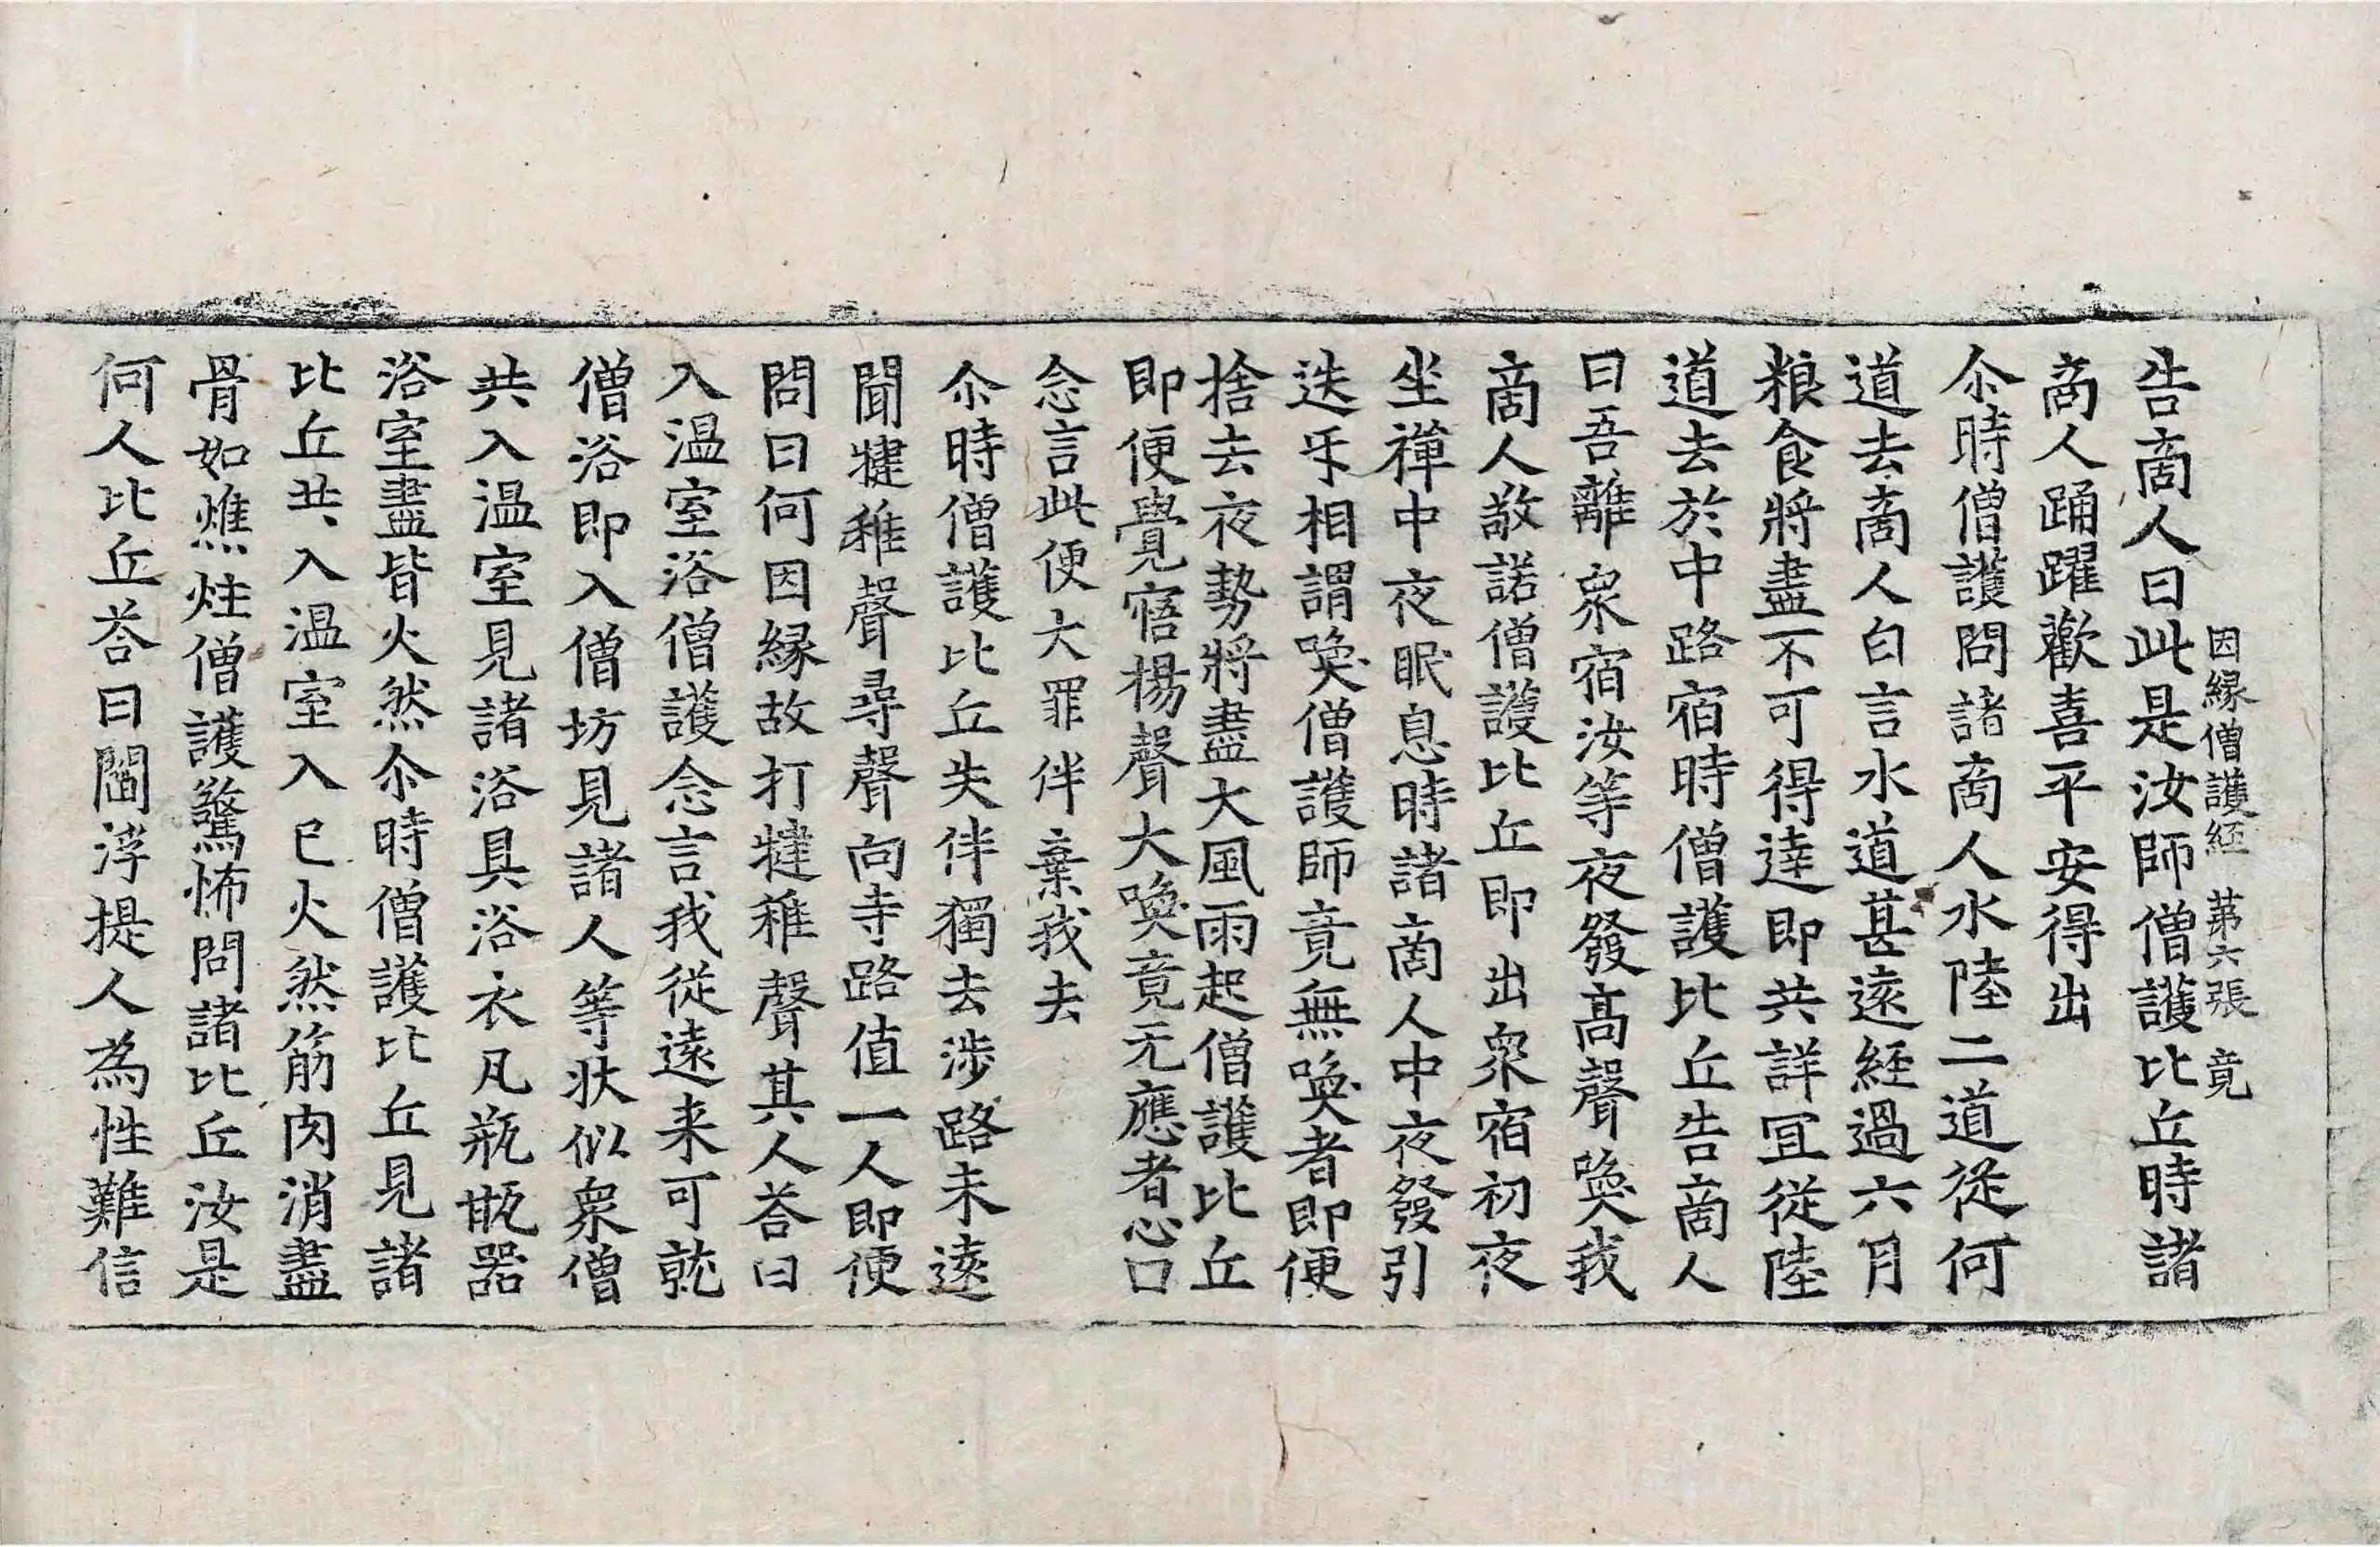 因緣僧護經 第六張 竟
告啇人曰此是汝師僧護比丘時諸
啇人踊躍歡喜平安得出
尒時僧護問諸啇人水陸二道從何
道去啇人白言水道甚遠經過六月
粮食將盡不可得達即共詳冝從陸
道去於中路宿時僧護比丘告啇人
曰吾離衆宿汝等夜發髙聲喚我
啇人敬諾僧護比丘即出衆宿初夜
坐禪中夜眠息時諸啇人中夜發引
迭㸦相謂喚僧護師竟無喚者即便
捨去夜勢將盡大風雨起僧護比丘
即便覺寤楊聲大喚竟无應者心口
念言此便大罪伴棄我去
尒時僧護比丘失伴獨去涉路未遠
聞犍稚聲尋聲向寺路值一人即便
問曰何因緣故打犍稚聲其人荅曰
入温室浴僧護念言我從遠来可就
僧浴即入僧坊見諸人等狀似衆僧
共入温室見諸浴具浴衣凡瓶瓨器
浴室盡皆火然尒時僧護比丘見諸
比丘共入温室入已火然筋肉消盡
骨如燋炷僧護驚怖問諸比丘汝是
何人比丘荅曰閻浮提人為性難信